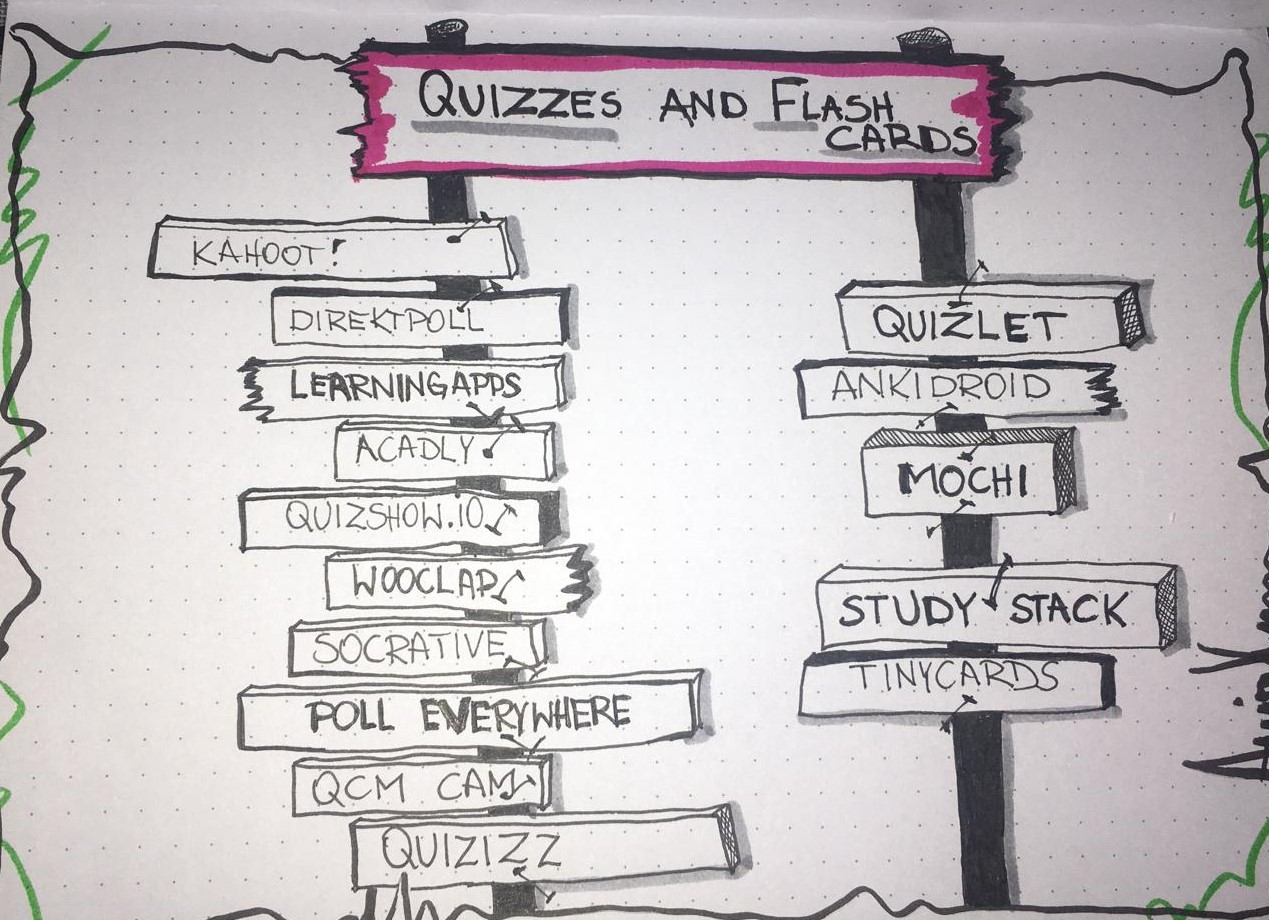 QUIZZES AND FLASH
CARDS
KAHOOT!
DIREKTPOLL
LEARNINGAPPS
ACADLY
QUIZSHOW.IO
WOOCLAP
SOCRATIVE
POLL EVERYWHERE
QCM CAM
QUIZIZZ
QUIZLET
ANKIDROID
MOCHI
STUDY STACK
TINYCARDS